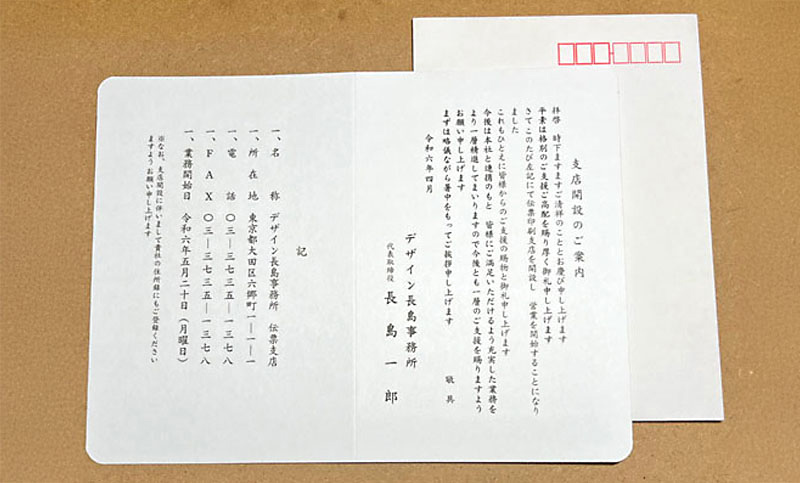 支店開設のご案内
拝啓 時下ますますご清祥のこととお慶び申し上げます
平素は格別のご支援ご高配を賜り厚く御礼申し上げます
さてこのたび左記にて伝票印刷支店を開設し 営業を開始することになり
ました
これもひとえに皆様からのご支援の賜物と御礼申し上げます
今後は本社と連携のもと 皆様にご満足いただけるよう充実した業務を
より一層精進してまいりますので今後とも一層のご支援を賜りますよう
お願い申し上げます
まずは略儀ながら書中をもってご挨拶申し上げます
敬具
令和六年四月
デザイン長島事務所
代表取締役 長島一郎
記
一、名称 デザイン長島事務所 伝票支店
一、所在地 東京都大田区六郷町一―一―一
一、電話 〇三―三七三五―一三七八
一、FAX 〇三―三七三五―一三七八
一、業務開始日 令和六年五月二十日(月曜日)
※なお、支店開設に伴いまして貴社の住所録にもご登録ください
ますようお願い申し上げます